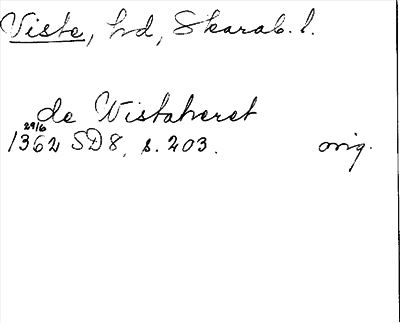 Viste, hd, Skarab. l.
de Wistahæret
29/6
1362 SD 8, s. 203. orig.